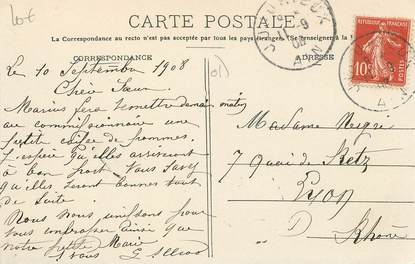 Lot
CARTE POSTALE
La Correspondance au recto n'est pas acceptée par tous les pays étrangers. (Se renseigner à la
CORRESPONDANCE
ADRESSE
Le 10 Septembre 1908
Chère Sœur
Marius fera remettre demain matin
au commissionnaire une
petite caisse de pommes.
J'espère qu'elles arriveront
à bon port Vous savez
qu'elles seront bonnes tout
de suite.
Nous nous unissons pour
vous embrasser ainsi que
notre petite Marie
à vous
Madame
7 quai de Retz
Lyon
Rhône
REPUBLIQUE FRANÇAISE
10c
POSTES